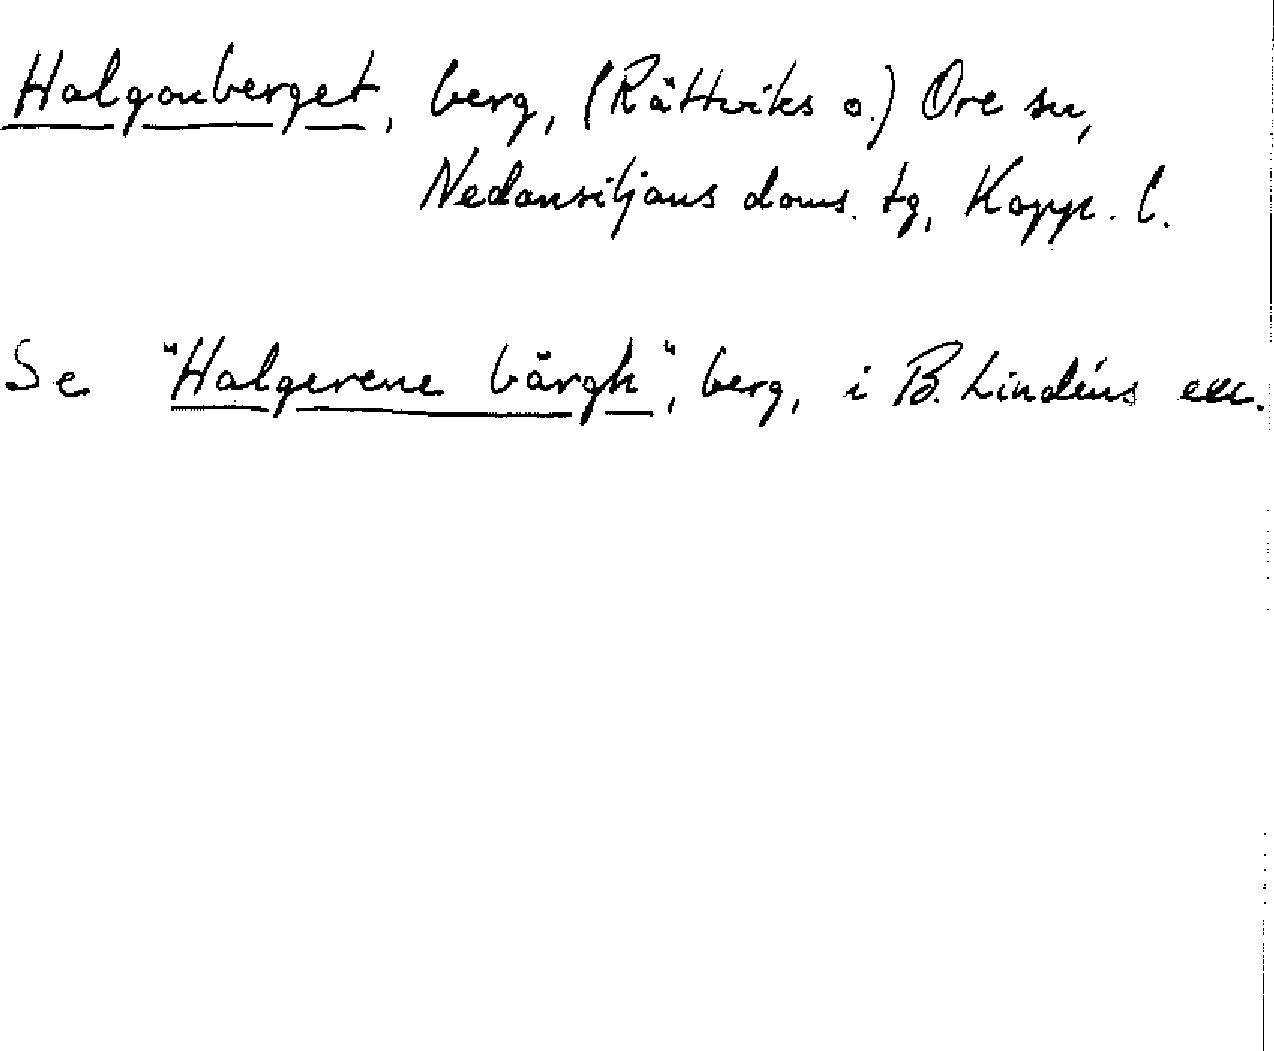 Halgonberget, berg, (Rättviks o.) Ore sn,
Nedansiljans doms. tg, Kopp. l.
Se "Halgerene bärgh", berg, i B. Lindéns exc.